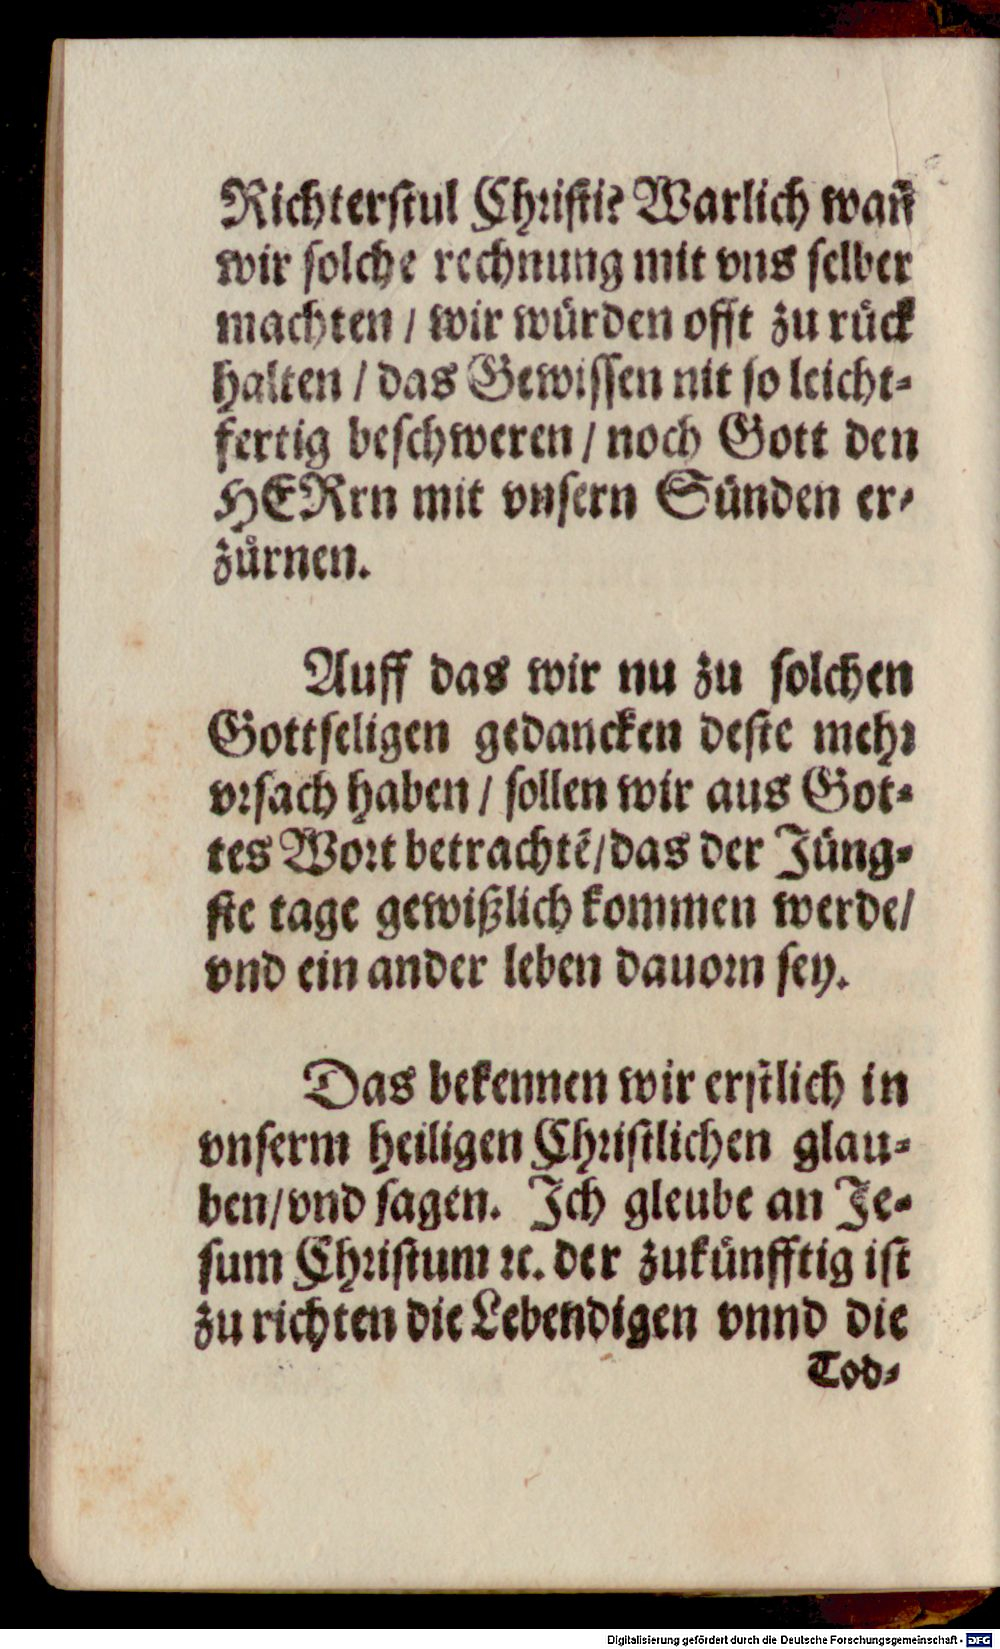 Richterſtul Chꝛiſti? Warlich wañ
wir ſolche rechnung mit vns ſelber
machten / wir würden offt zu rück
halten / das Gewiſſen nit ſo leicht⸗
fertig beſchweren / noch Gott den
HERrn mit vnſern Sünden er⸗
zürnen.
Auff das wir nu zu ſolchen
Gottſeligen gedancken deſte mehꝛ
vꝛſach haben / ſollen wir aus Got⸗
tes Woꝛt betrachtẽ/das der Jüng⸗
ſte tage gewißlich kommen werde/
vnd ein ander leben dauoꝛn ſey.
Das bekennen wir erſtlich in
vnſerm heiligen Chꝛiſtlichen glau⸗
ben/vnd ſagen. Ich gleube an Je⸗
ſum Chꝛiſtum ꝛc. der zukünfftig iſt
zu richten die Lebendigen vnnd die
Tod⸗
Digitalisierung gefördert durch die Deutsche Forschungsgemeinschaft - DFG